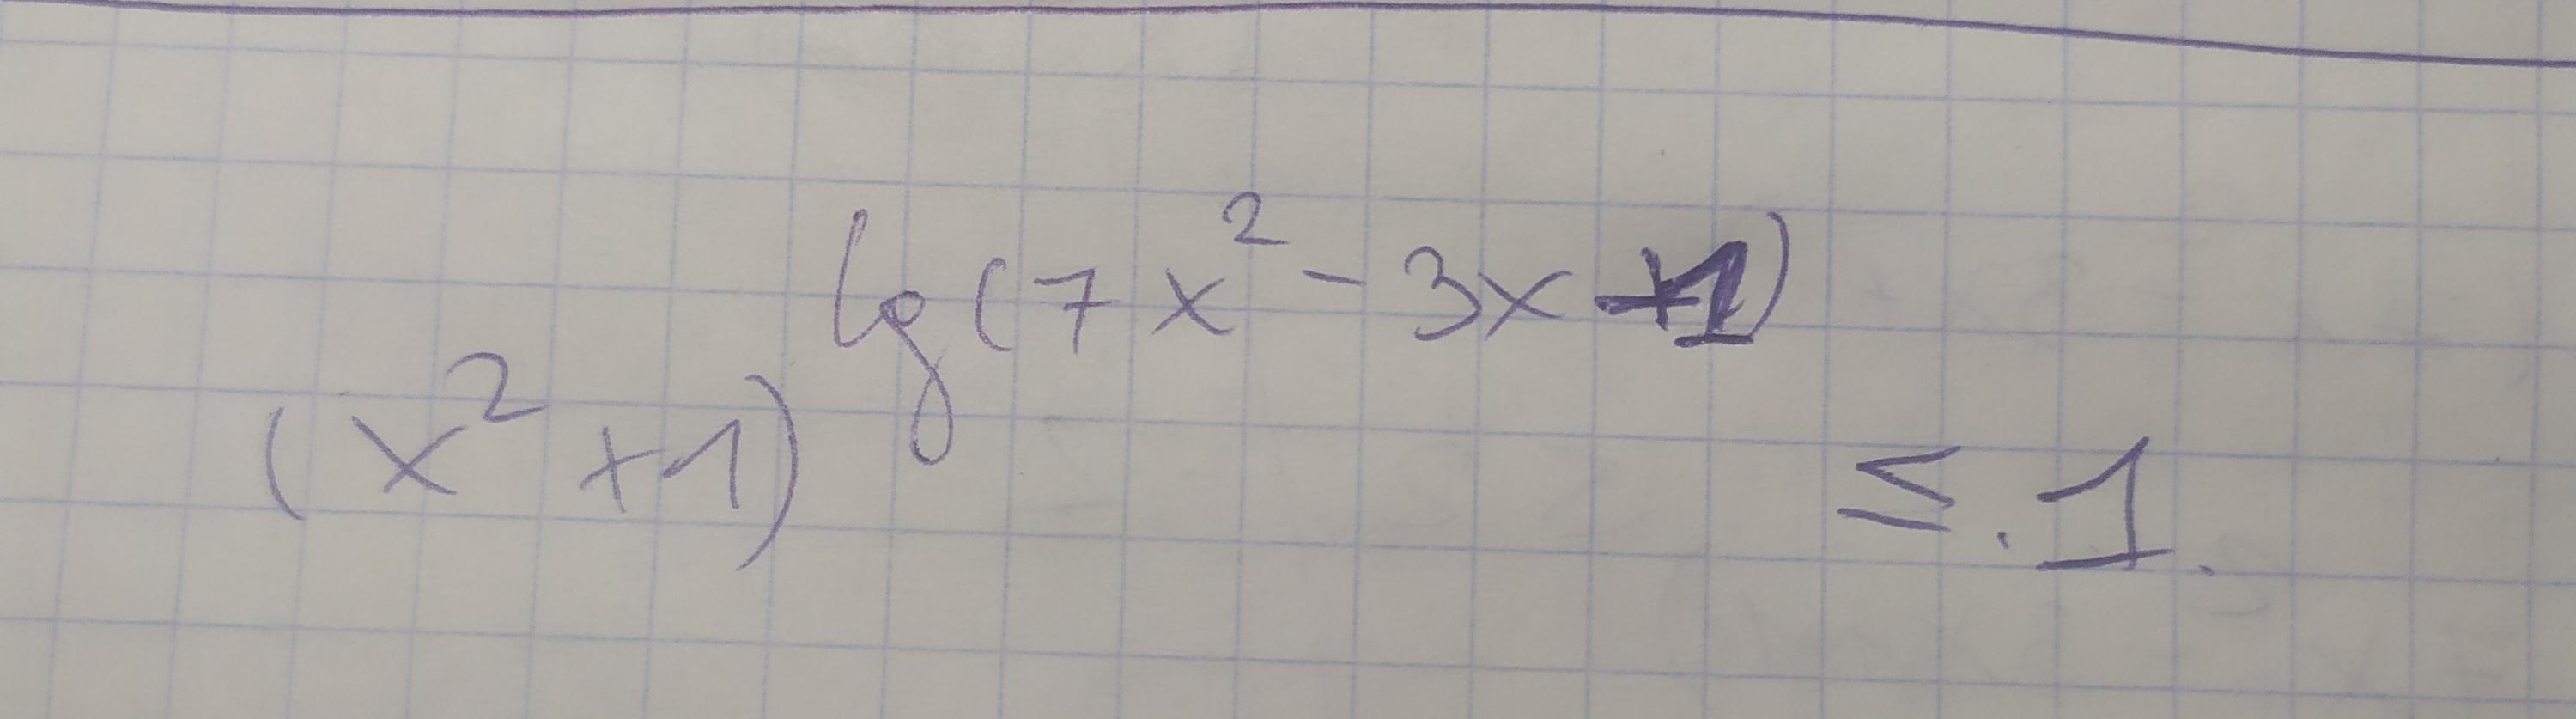 (x²+1)^lg(7x²-3x+1) ≤. 1.